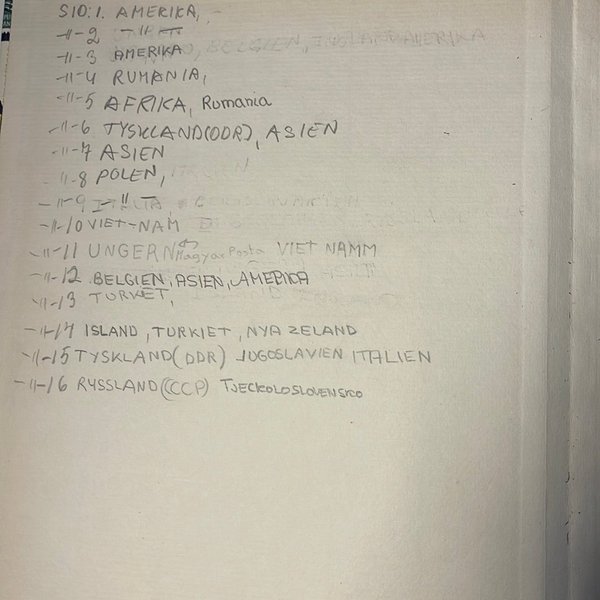 SID: 1. AMERIKA,
-11-2 -11-
-11-3 AMERIKA
-11-4 RUMANIA,
-11-5 AFRIKA, Romania
-11-6 TYSKLAND(DDR), ASIEN
-11-7 ASIEN
-11-8 POLEN,
-11-9 -11-
-11-10 VIET-NAM
-11-11 UNGERN Magyar Posta VIET NAMM
-11-12 BELGIEN, ASIEN, AMERIKA
-11-13 TURKET,
-11-14 ISLAND, TURKIET, NYA ZELAND
-11-15 TYSKLAND(DDR) JUGOSLAVIEN ITALIEN
-11-16 RYSSLAND(CCCP) TJECKOLOSLOVENSKO